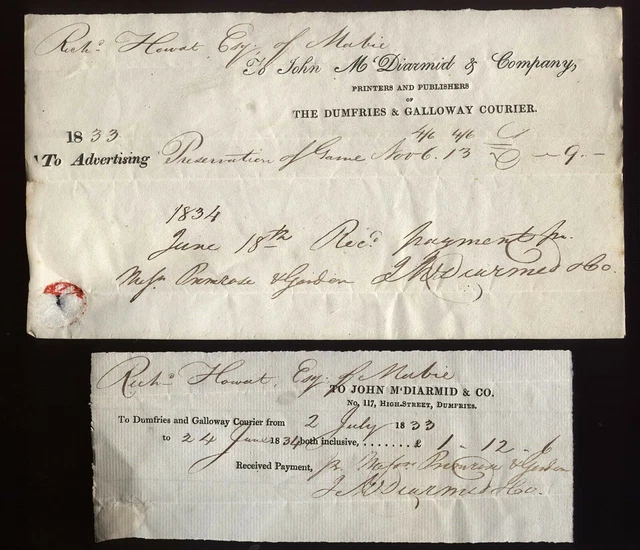 Richd Howat Esq. of Mabie
To John McDiarmid & Company,
PRINTERS AND PUBLISHERS
OF
THE DUMFRIES & GALLOWAY COURIER.
1833 4/6 4/6
To Advertising Preservation of Game Nov 6. 13 — 9. —
1834
June 18th Recd payment pr.
Messrs Primrose & Gordon J McDiarmid & Co.
Richd Howat, Esq. of Mabie
TO JOHN McDIARMID & CO.
No. 117, HIGH-STREET, DUMFRIES.
To Dumfries and Galloway Courier from 2 July 1833
to 24 June 1834 both inclusive, ........ £ 1 - 12 - 6
Received Payment, pr. Messrs Primrose & Gordon
J McDiarmid & Co.